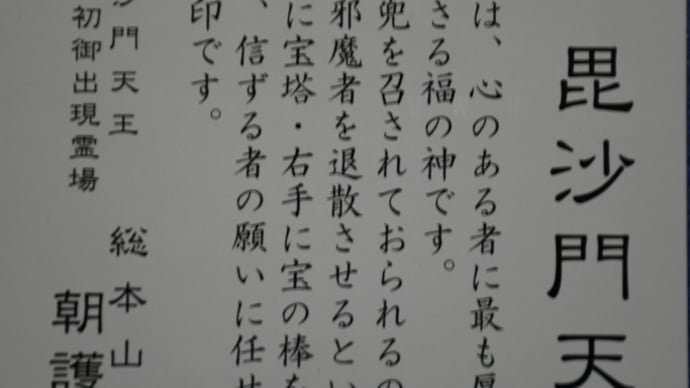 毘沙門天
は、心のある者に最も厚
さる福の神です。
兜を召されておられるの
邪魔者を退散させるとい
に宝塔・右手に宝の棒を
、信ずる者の願いに任せ
印です。
沙門天王
初御出現霊場
総本山
朝護